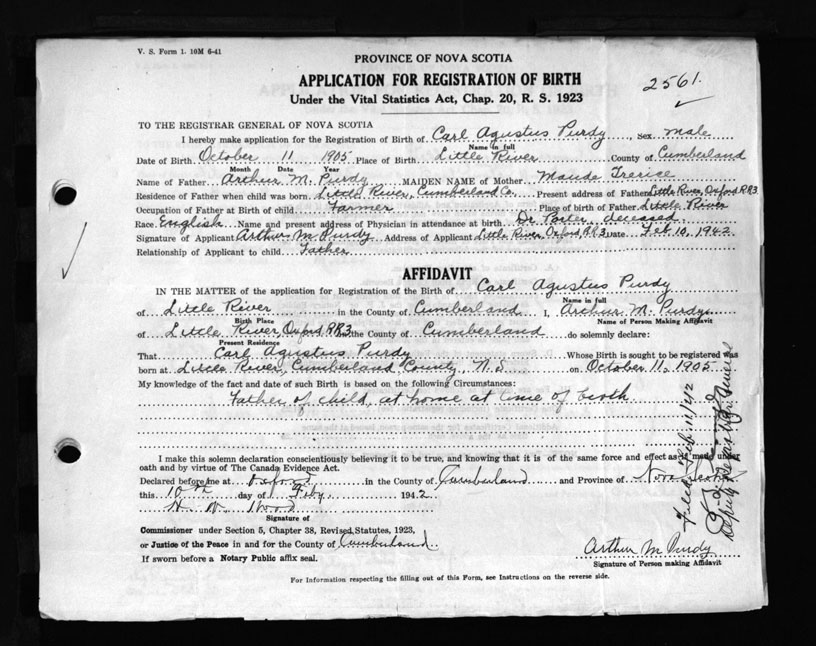 V. S. Form 1. 10M 6-41
PROVINCE OF NOVA SCOTIA
APPLICATION FOR REGISTRATION OF BIRTH
Under the Vital Statistics Act, Chap. 20, R. S. 1923
2561.
TO THE REGISTRAR GENERAL OF NOVA SCOTIA
I hereby make application for the Registration of Birth of Carl Agustus Purdy, Sex Male
Name in full
Date of Birth October 11 1905 Place of Birth Little River County of Cumberland
Month Date Year
Name of Father Arthur M. Purdy MAIDEN NAME of Mother Maude Trerice
Residence of Father when child was born Little River, Cumberland Co. Present address of Father Little River, Oxford RR3
Occupation of Father at Birth of child Farmer Place of birth of Father Little River
Race English Name and present address of Physician in attendance at birth Dr Porter deceased
Signature of Applicant Arthur M Purdy Address of Applicant Little River, Oxford, RR3 Date Feb 10, 1942
Relationship of Applicant to child Father
AFFIDAVIT
IN THE MATTER of the application for Registration of the Birth of Carl Agustus Purdy
Name in full
of Little River in the County of Cumberland I, Arthur M. Purdy
Birth Place Name of Person Making Affidavit
of Little River, Oxford RR3 in the County of Cumberland do solemnly declare:
Present Residence
That Carl Agustus Purdy Whose Birth is sought to be registered was
born at Little River, Cumberland County, N.S on October 11, 1905
My knowledge of the fact and date of such Birth is based on the following Circumstances:
Father of child, at home at time of birth.
I make this solemn declaration conscientiously believing it to be true, and knowing that it is of the same force and effect as if made under
oath and by virtue of The Canada Evidence Act.
Declared before me at Oxford in the County of Cumberland and Province of Nova Scotia
this 10th day of Feby 1942
H. W.
Signature of
Commissioner under Section 5, Chapter 38, Revised Statutes, 1923,
or Justice of the Peace in and for the County of Cumberland
If sworn before a Notary Public affix seal.
Arthur M Purdy
Signature of Person making Affidavit
For Information respecting the filling out of this Form, see Instructions on the reverse side.
Filed Feb. 11/42
Deputy Registrar General